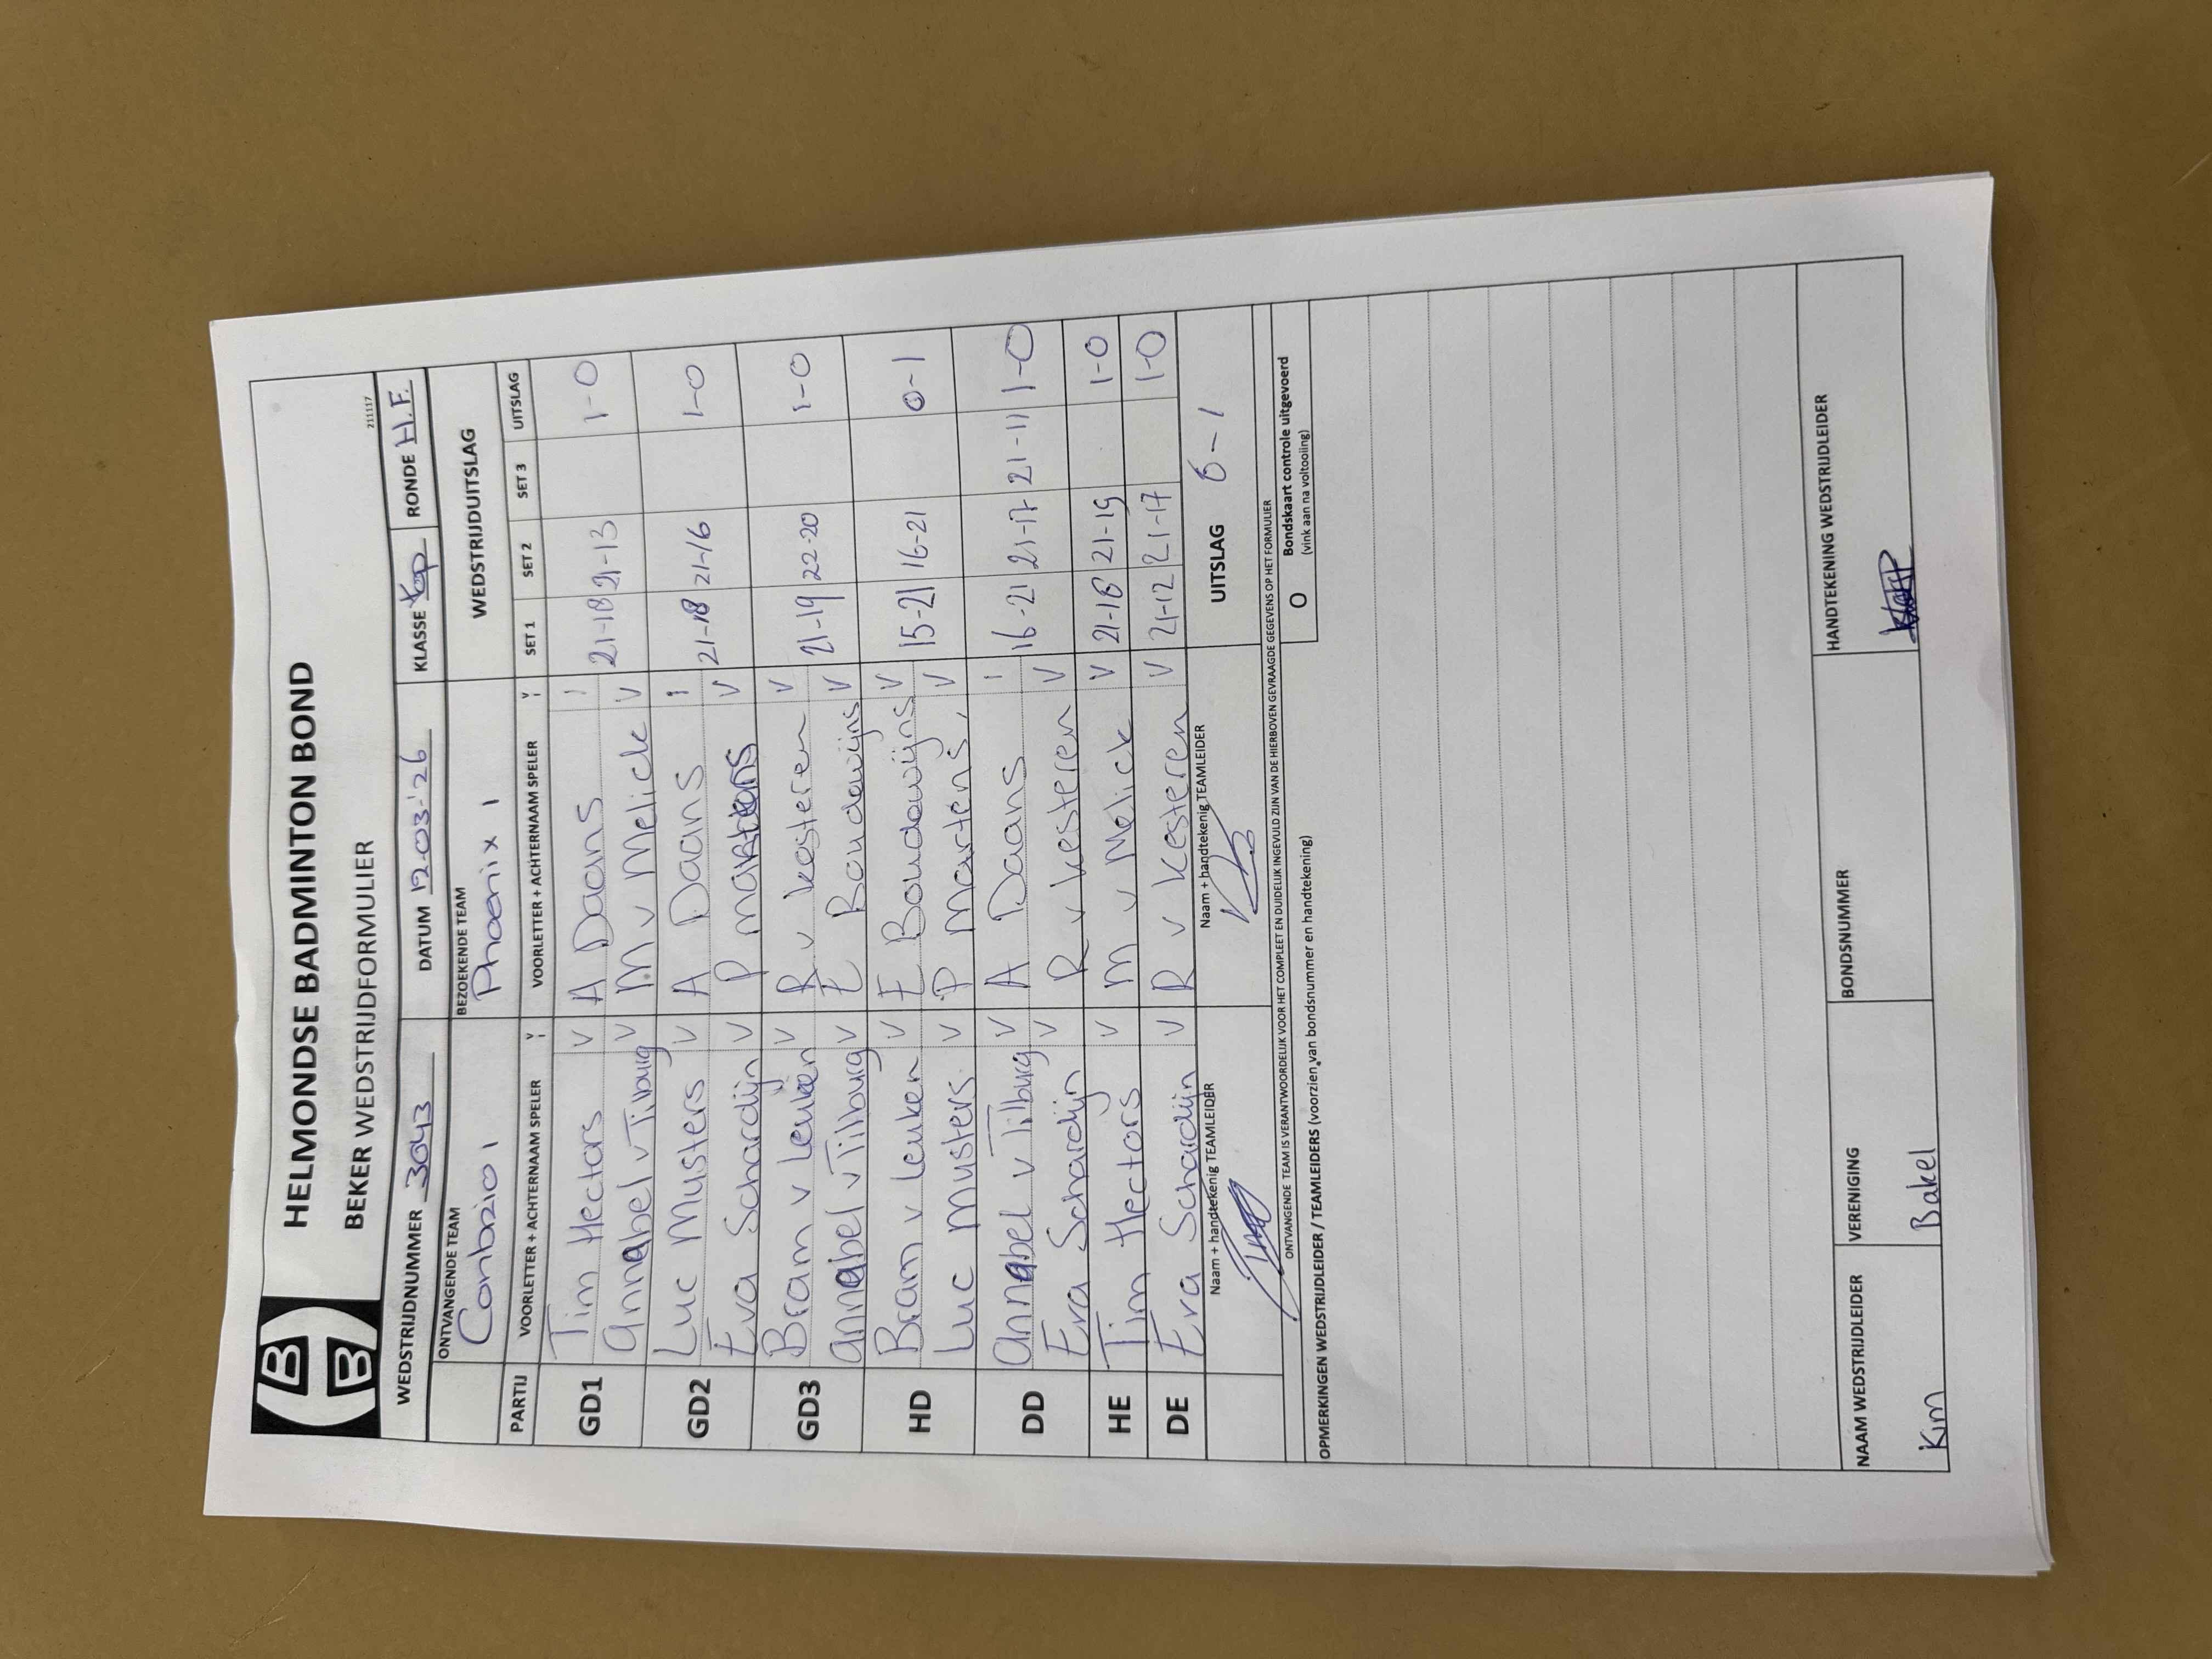 HELMONDSE BADMINTON BOND
BEKER WEDSTRIJDFORMULIER
211117
WEDSTRIJDNUMMER 3043 DATUM 12-03-'26 KLASSE Top RONDE H.F.
ONTVANGENDE TEAM BEZOEKENDE TEAM WEDSTRIJDUITSLAG
Conbzio 1 Phoenix 1
PARTIJ VOORLETTER + ACHTERNAAM SPELER VOORLETTER + ACHTERNAAM SPELER SET 1 SET 2 SET 3 UITSLAG
GD1 Tim Hectors V A Daans 21-18 21-13 1-0
Annabel v Tilburg V M v Melick V
GD2 Luc Musters V A Daans 21-18 21-16 1-0
Eva Schardijn V P Martens V
GD3 Bram v Leuken V R v Kesteren V 21-19 22-20 1-0
Annabel v Tilburg V E Boudewijns V
HD Bram v Leuken V E Boudewijns V 15-21 16-21 0-1
Luc Musters V P Martens V
DD Annabel v Tilburg V A Daans 16-21 21-17 21-11 1-0
Eva Schardijn V R v Kesteren V
HE Tim Hectors V M v Melick V 21-18 21-19 1-0
DE Eva Schardijn V R v Kesteren V 21-12 21-17 1-0
Naam + handtekenig TEAMLEIDER Naam + handtekenig TEAMLEIDER UITSLAG 6-1
ONTVANGENDE TEAM IS VERANTWOORDELIJK VOOR HET COMPLEET EN DUIDELIJK INGEVULD ZIJN VAN DE HIERBOVEN GEVRAAGDE GEGEVENS OP HET FORMULIER
OPMERKINGEN WEDSTRIJDLEIDER / TEAMLEIDERS (voorzien van bondsnummer en handtekening)
O Bondskaart controle uitgevoerd
(vink aan na voltooiing)
NAAM WEDSTRIJDLEIDER VERENIGING BONDSNUMMER HANDTEKENING WEDSTRIJDLEIDER
Kim Bakel